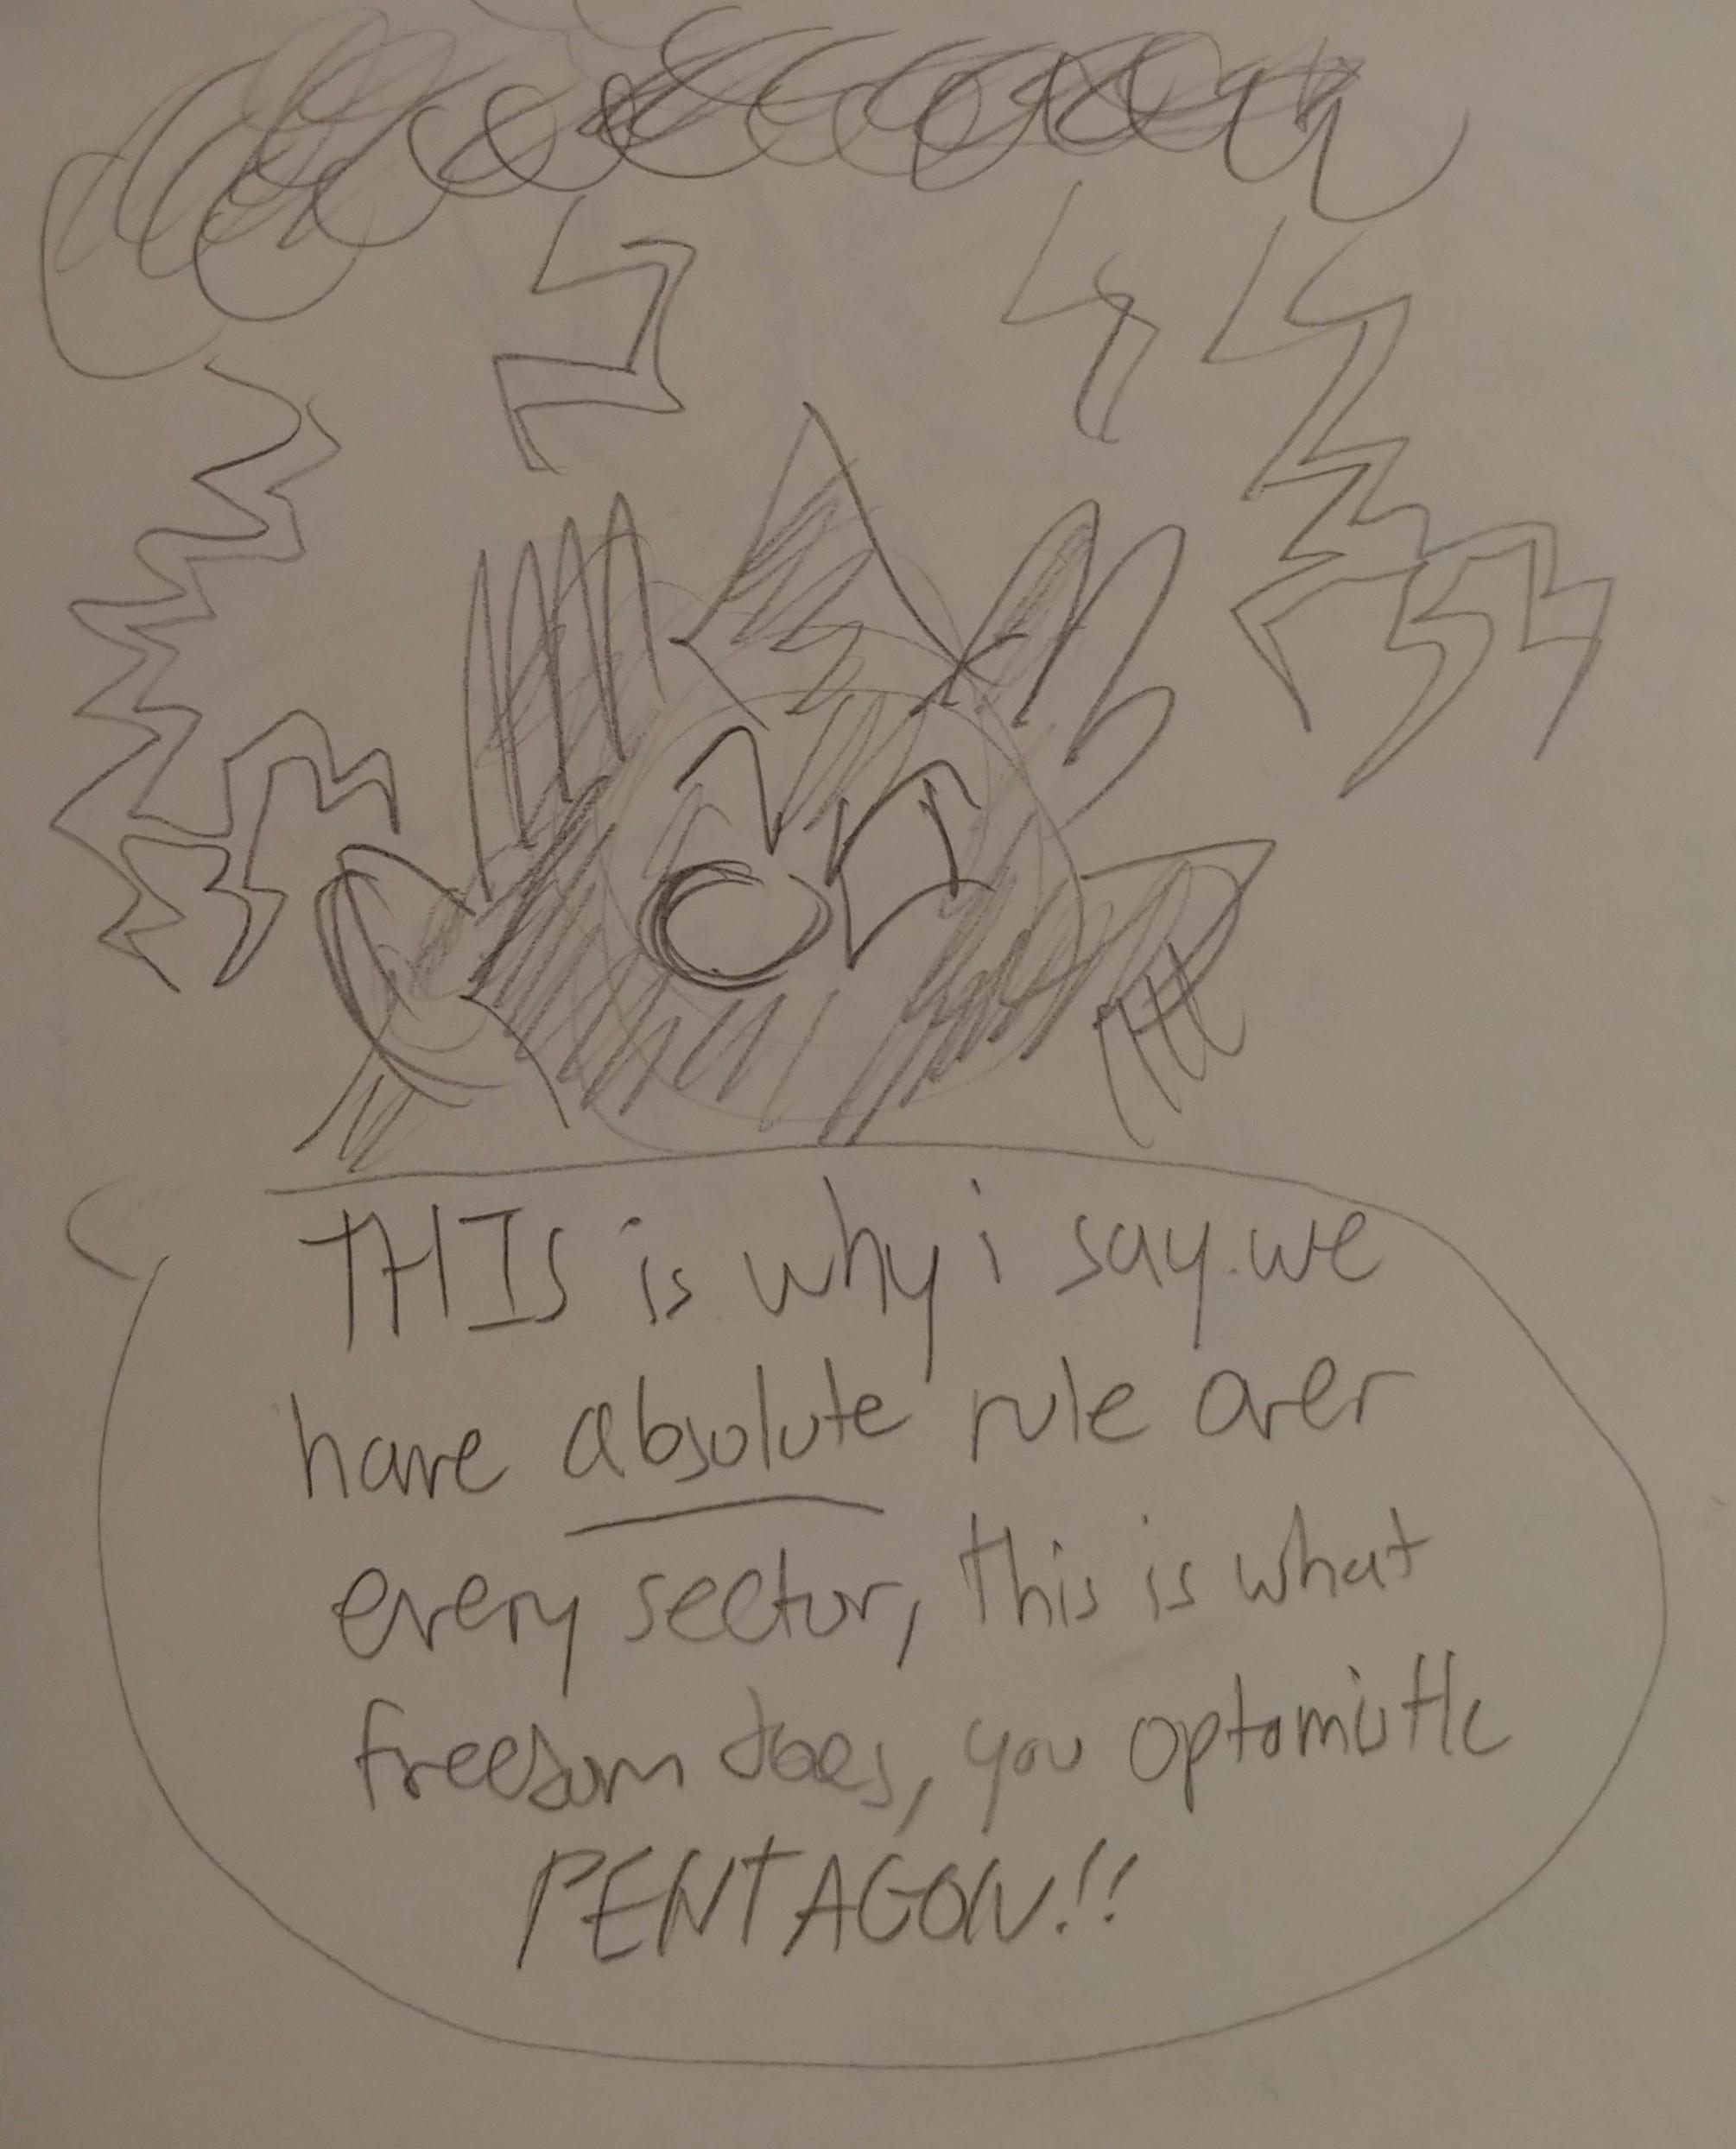 THIS is why i say we
have absolute rule over
every sector, this is what
freedom does, you optomistic
PENTAGON!!